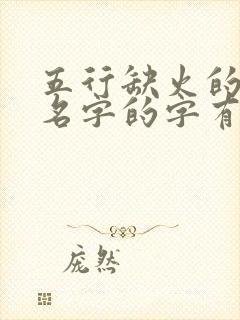 五行缺火的
名字的字有
庞然